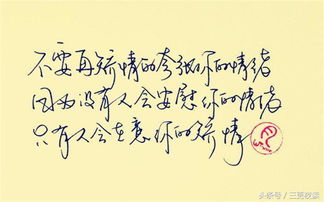 不要再矫情的夸张你的情绪
因为没有人会安慰你的情绪
只有人会在意你的矫情
头条号/三更校素